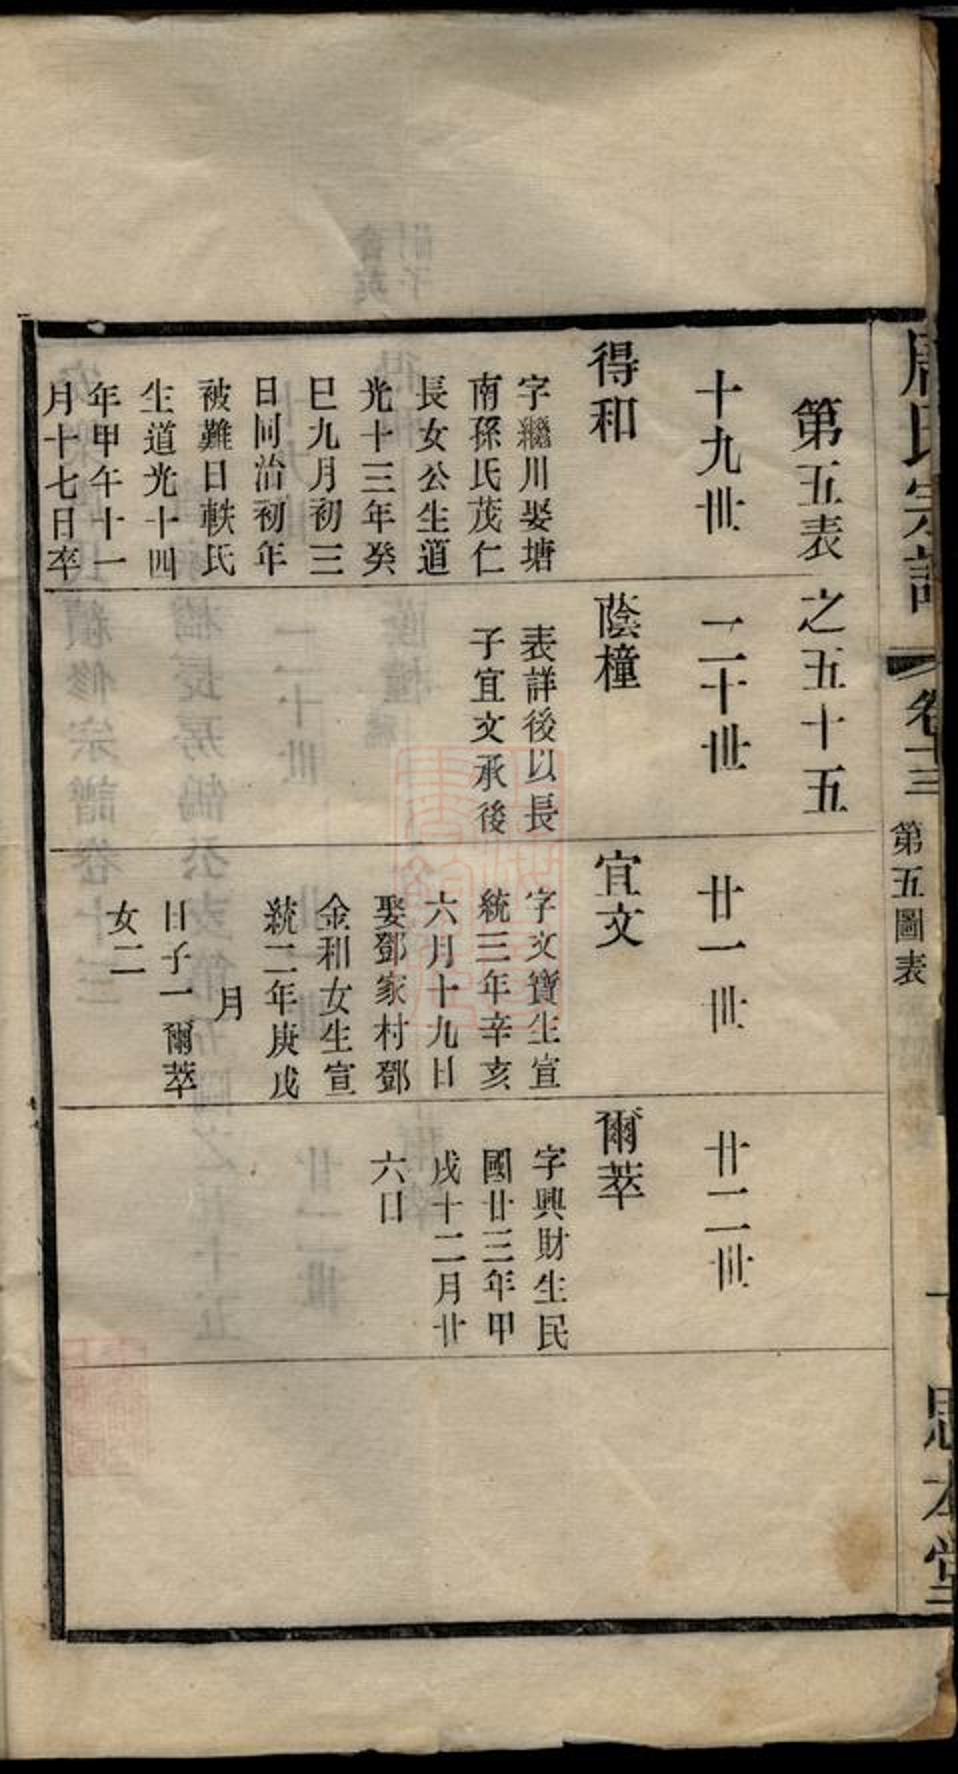 第五表之五十五
十九世
二十世
廿一世
廿二世
得和
字繼川娶塘
南孫氏茂仁
長女公生道
光十三年癸
巳九月初三
日同治初年
被難日軼氏
生道光十四
年甲午十一
月十七日卒
蔭橦
表詳後以長
子宜文承後
宜文
字文寶生宣
統三年辛亥
六月十九日
娶鄧家村鄧
金和女生宣
統二年庚戌
月
日子一爾萃
女二
爾萃
字興財生民
國廿三年甲
戌十二月廿
六日
氏宗譜
卷十三
第五圖表
思本堂